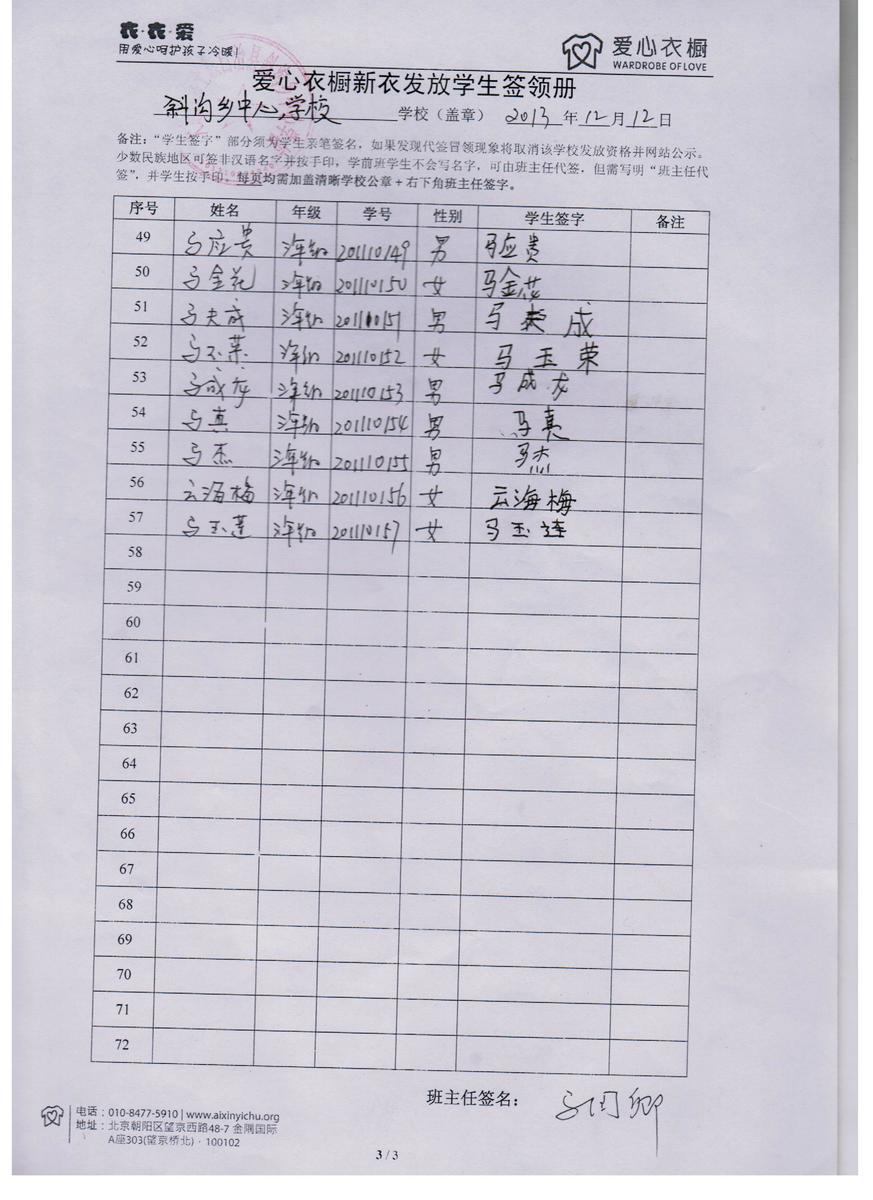 衣·衣·爱
用爱心呵护孩子冷暖!
爱心衣橱
WARDROBE OF LOVE
爱心衣橱新衣发放学生签领册
斜沟乡中心学校 学校（盖章） 2013 年 12 月 12 日
备注：“学生签字”部分须为学生亲笔签名，如果发现代签冒领现象将取消该学校发放资格并网站公示。
少数民族地区可签非汉语名字并按手印，学前班学生不会写名字，可由班主任代签，但需写明“班主任代
签”，并学生按手印。每页均需加盖清晰学校公章+右下角班主任签字。
序号 姓名 年级 学号 性别 学生签字 备注
49 马应贵 201110149 男 马应贵
50 马金花 201110150 女 马金花
51 马夫成 201110151 男 马 成
52 马玉荣 201110152 女 马玉荣
53 马成龙 201110153 男 马成龙
54 马真 201110154 男 马真
55 马杰 201110155 男 马杰
56 云海梅 201110156 女 云海梅
57 马玉莲 201110157 女 马玉连
58
59
60
61
62
63
64
65
66
67
68
69
70
71
72
班主任签名：
电话：010-8477-5910 | www.aixinyichu.org
地址：北京朝阳区望京西路48-7 金隅国际
A座303(望京桥北)·100102
3 / 3